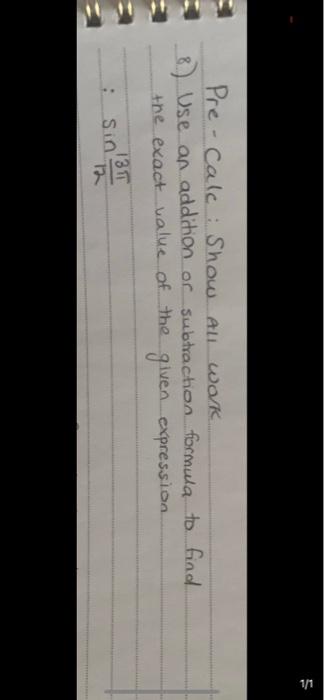 Pre-Calc: Show All work
8) Use an addition or subtraction formula to find
the exact value of the given expression
: sin 13π/12
1/1